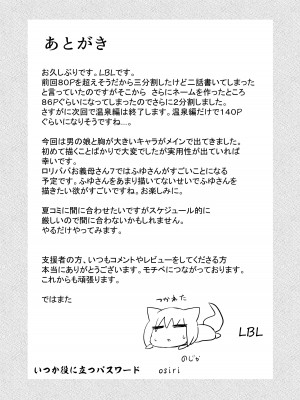 あとがき
お久しぶりです。LBLです。
前回80Pを超えそうだから三分割したけど二話書いてしまった
と言っていたのですがそこから さらにネームを作ったところ
86Pぐらいになってしまったのでさらに2分割しました。
さすがに次回で温泉編は終了します。温泉編だけで140P
ぐらいになりそうですね…。
今回は男の娘と胸が大きいキャラがメインで出てきました。
初めて描くことばかりで大変でしたが実用性が出ていれば
幸いです。
ロリババお義母さん7ではふゆさんがすごいことになる
予定です。ふゆさんをあまり描いてないせいでふゆさんを
描きたい欲がすごいですね。お楽しみに。
夏コミに間に合わせたいですがスケジュール的に
厳しいので間に合わないかもしれません。
やるだけやってみます。
支援者の方、いつもコメントやレビューをしてくださる方
本当にありがとうございます。モチベにつながっております。
これからも頑張ります。
ではまた
つかれた
のじゃ
LBL
いつか役に立つパスワード osiri